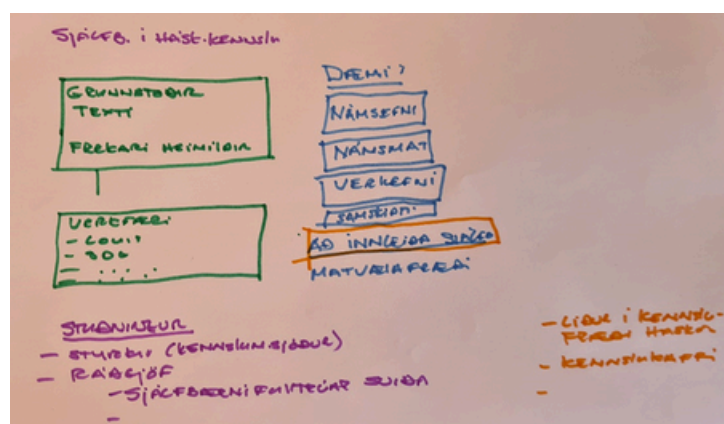 SJÁLFB. Í HÁSK.KENNSLU
GRUNNATRIÐIR
TEXTI
FREKARI HEIMILDIR
VERKFÆRI
- COURIT
- SDG
- .....
DÆMI?
NÁMSEFNI
NÁMSMAT
VERKEFNI
SAMSKIPTI
AÐ INNLEIÐA SJÁLFB
MATVÆLAFRÆÐI
STUÐNINGUR
- STYRKIR (KENNSLUMSJÓÐUR)
- RÁÐGJÖF
- SJÁLFBÆRNIFULLTRÚAR SVIÐA
-
- LIÐUR Í KENNSLU-
FRÆÐI HÁSKÓLA
- KENNSLUKAFFI
-